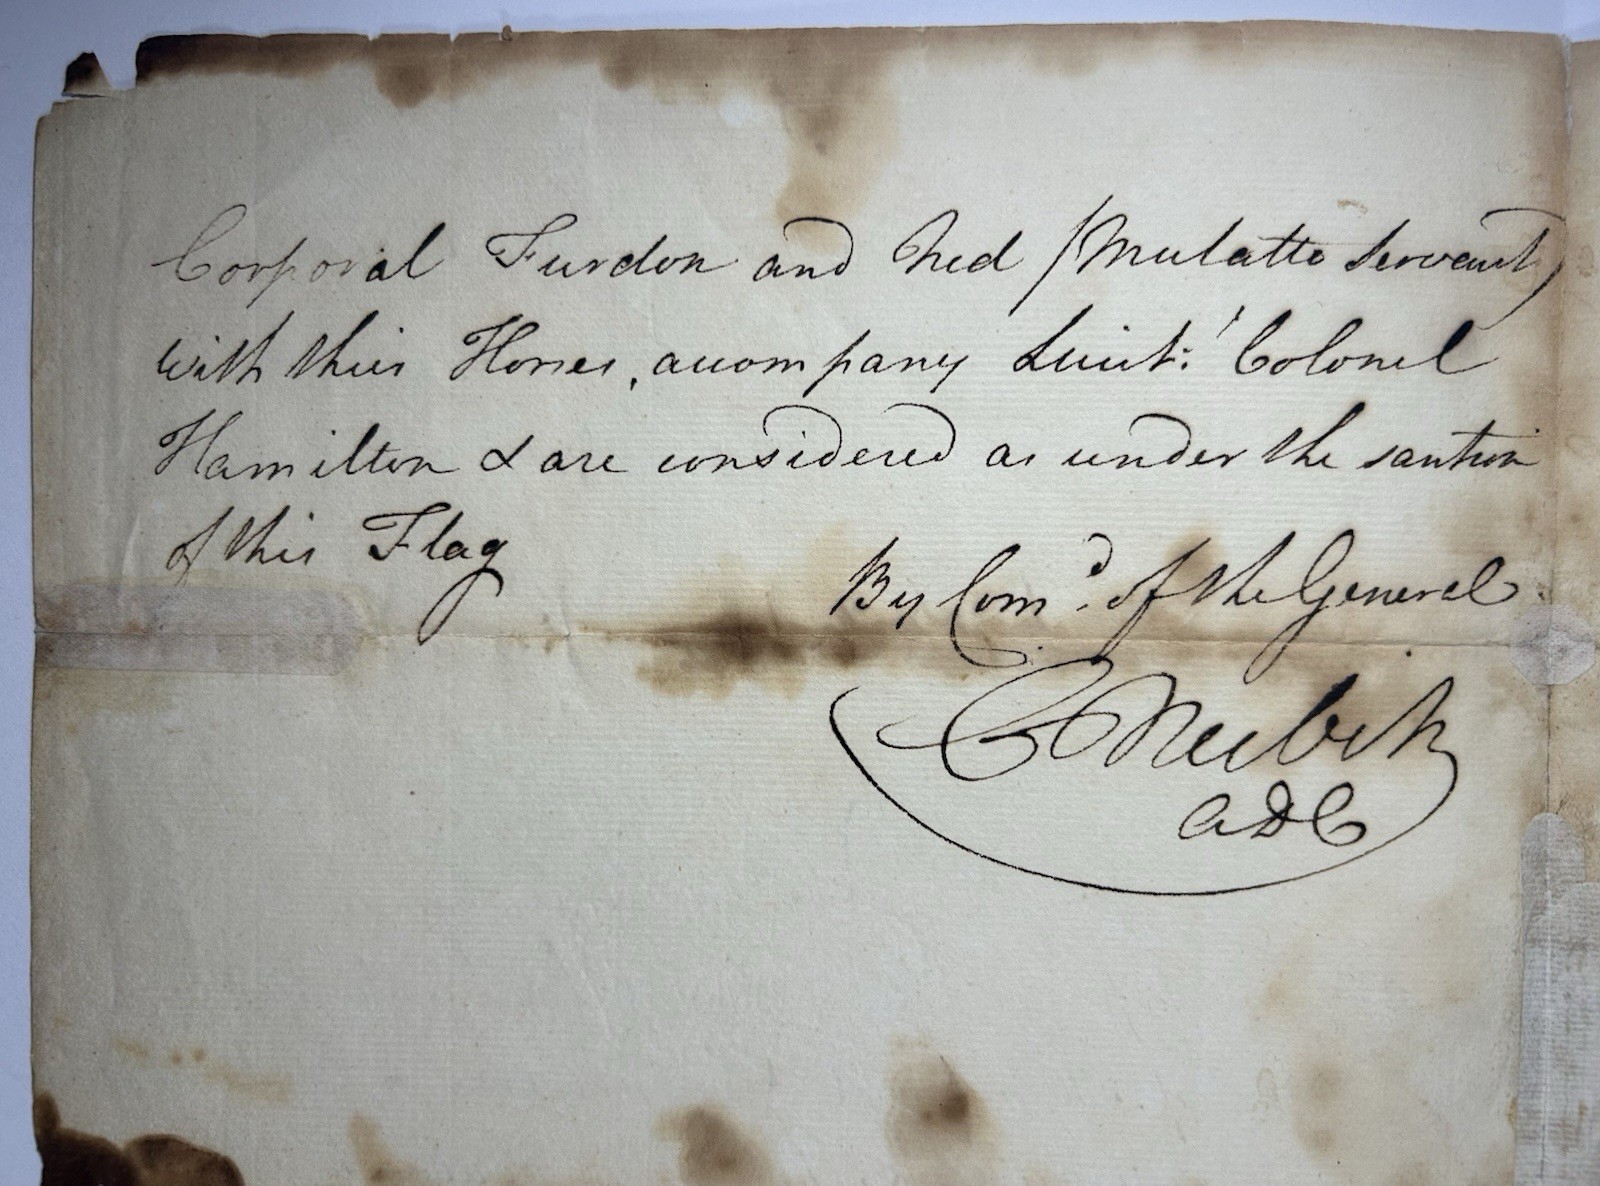 Corporal Furdon and Ned (Mulatto Servant)
with thier Horses, accompany Lieut:' Colonel
Hamilton & are considered as under the sanction
of this Flag
By Com:d of the General
ADC